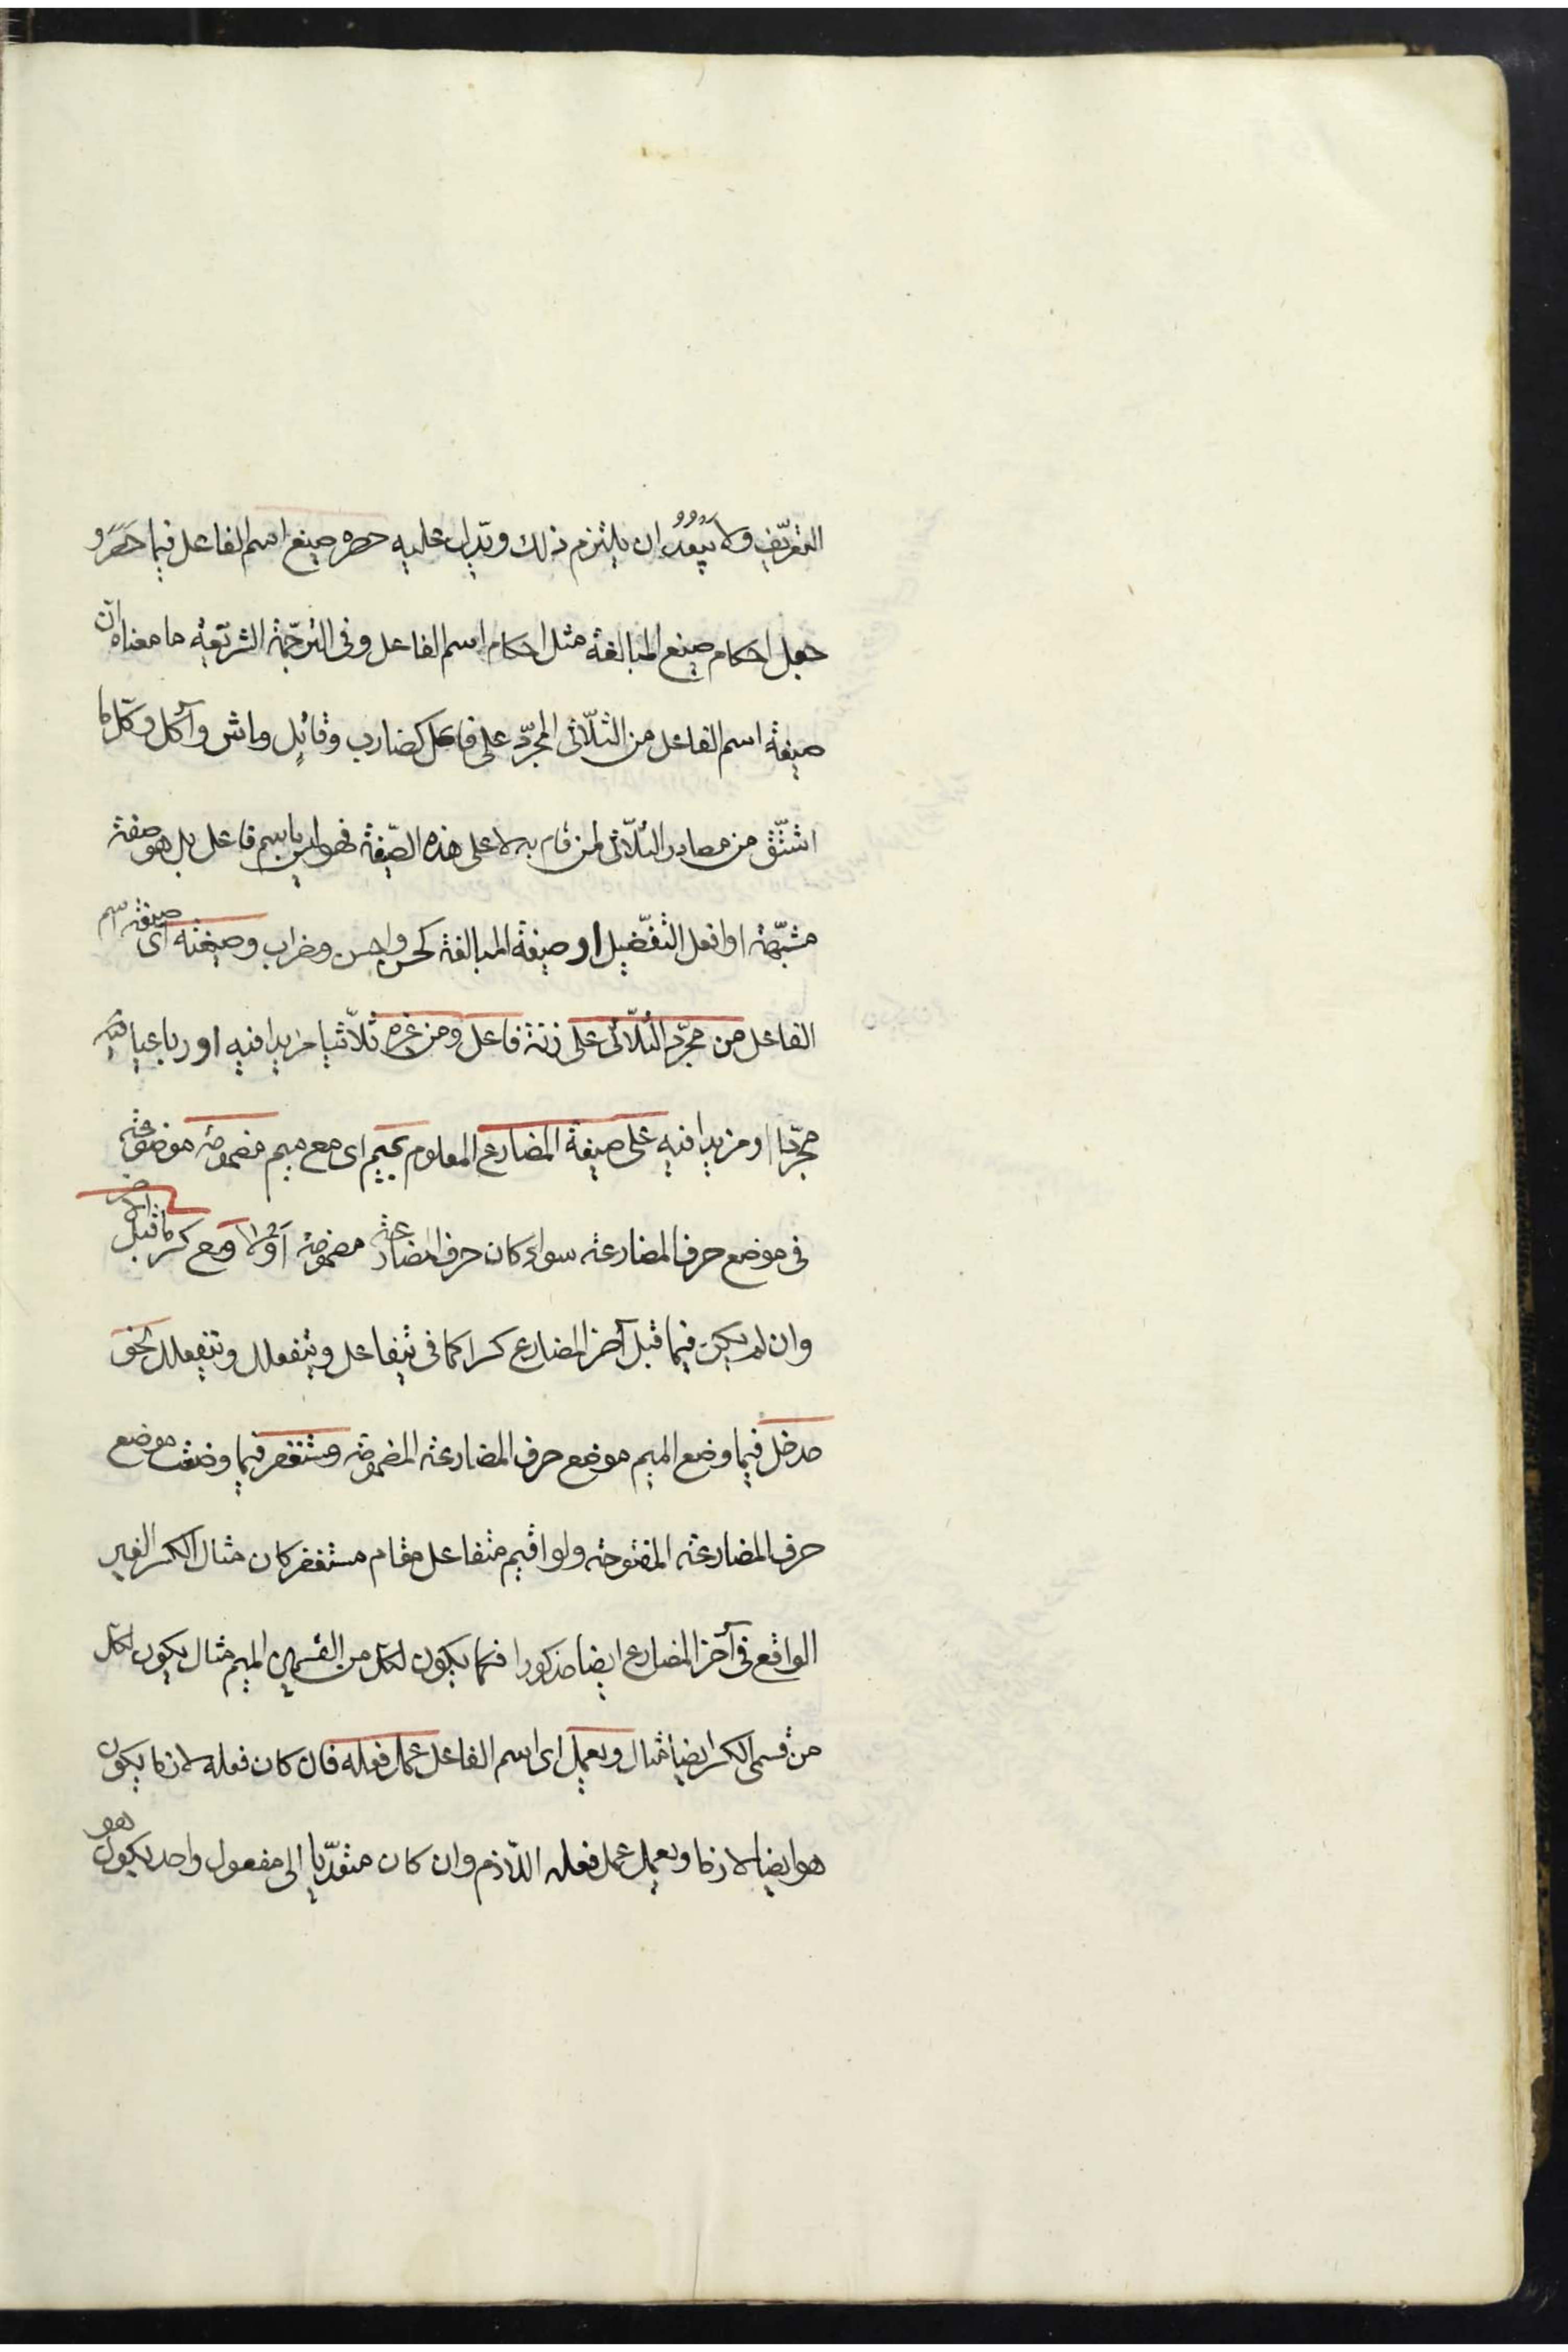 التعريف ولا يبعد ان يلتزم ذلك ويدل عليه حصره صيغ اسم الفاعل فيما حصر و
جعل احكام صيغ المبالغة مثل احكام اسم الفاعل وفى الترجمة الشريفة ما معناه ان
صيغة اسم الفاعل من الثلاثى المجرد على فاعل كضارب وقاتل وماش وآكل وكل ما
اشتق من مصادر الثلاثى لمن قام به لا على هذه الصيغة فهو ليس باسم فاعل بل هو صفة
مشبهة او افعل التفضيل او صيغة المبالغة كحسن واحسن وضراب وصيغته اى صيغة اسم
الفاعل من مجرد الثلاثى على زنة فاعل ومن غيره ثلاثيا مزيدا فيه او رباعيا
مجردا او مزيدا فيه على صيغة المضارع المعلوم بميم اى مع ميم مضمومة موضوعة
فى موضع حرف المضارعة سواء كان حرف المضارعة مضمومة اولا ومع كسر ما قبل الآخر
وان لم يكن فيما قبل آخر المضارع كسر كما فى يتفاعل ويتفعل ويتفعلل نحو
مدخل فيما وضع الميم موضع حرف المضارعة المضمومة ومستغفر فيما وضعت موضع
حرف المضارعة المفتوحة ولو اقيم متفاعل مقام مستغفر كان مثال الكسر الغير
الواقع فى آخر المضارع ايضا مذكورا فكما يكون لكل من القسمين الميم مثال يكون لكل
من قسمى الكسر ايضا مثال ويعمل اى اسم الفاعل عمل فعله فان كان فعله لازما يكون
هو ايضا لازما ويعمل عمل فعله اللازم وان كان متعديا الى مفعول واحد يكون هو